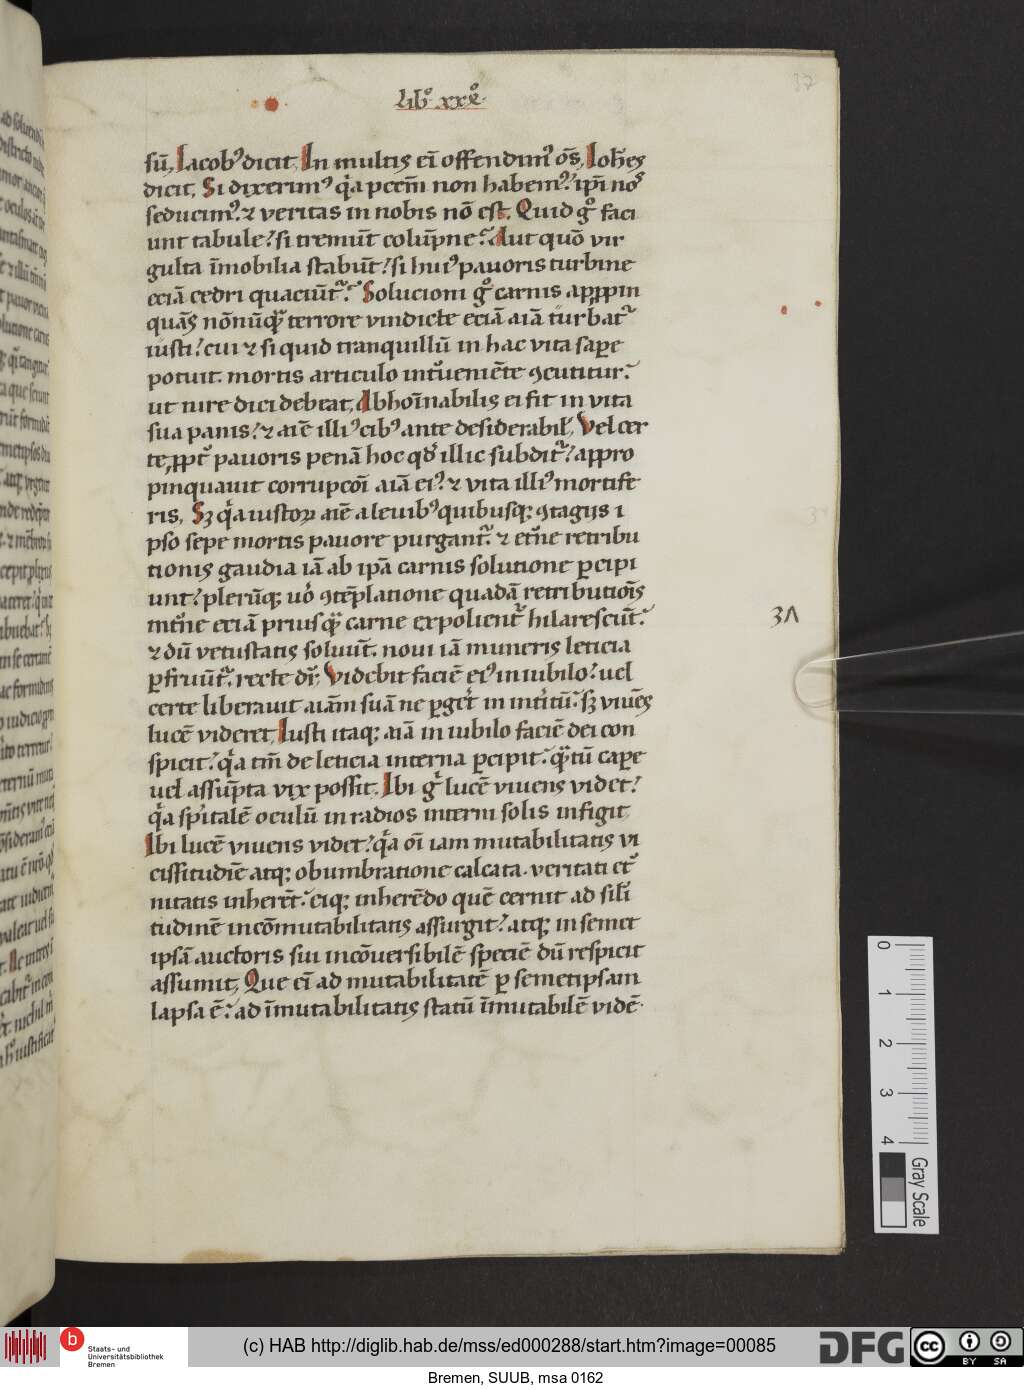 lib͛ xxͦ
37
sū, Iacob᾽ dicit, In multis eī offendim᾽ oēs, Ioh̄es
dicit, Si dixerim᾽ q̇a pccm̄ non habem᾽. ip̄i no᾽
seducim᾽. ⁊ veritas in nobis nō est. Quid g° faci
unt tabule? si tremūt colūpne? Aut quō vir
gulta īmobilia stabūt? si hui᾽ pavoris turbine
eciā cedri quaciūt᷑? Solucioni g° carnis appropin
quās nōnūqꝫ terrore vindicte eciā aīā turbat᷑
iusti? cui ⁊ si quid tranquillū in hac vita sapꝑe
potuit. mortis articulo int᷑ueniēte ꝯcutitur.
ut iure dici debeat, Abhoīnabilis ei fit in vita
sua panis? ⁊ aīe illi᾽ cib᾽ ante desiderabil̕, Vel cer
te, ꝓpt᷑ pavoris penā hoc qd̕ illic subdit᷑? appro
pinquavit corrupcoī aīā ei᾽? ⁊ vita illi᾽ mortife
ris, Sꝫ q̇a iustoꝝ aīe a levib᾽ quibusqꝫ ꝯtagijs i
pso sepe mortis pavore purgant᷑. ⁊ et᷑ne retribu
tionis gaudia iā ab ipā carnis solutione ꝑcipi
unt? plerūqꝫ uo̕ ꝯtēplatione quadā retributiōis
int᷑ne eciā priusqꝫ carne expolient᷑ hilarescūt.
⁊ dū vetustatis soluūt. novi iā muneris leticia
ꝑfruūt᷑. recte dr̄, Videbit faciē ei᾽ in iubilo? uel
certe liberavit aīam suā ne ꝑget̄ in intitū. sꝫ vivēs
lucē videret, Iusti itaqꝫ aīā in iubilo faciē dei con
spicit? q̇a tm̄ de leticia interna ꝑcipit. qͣtū capꝑe
uel assūpta vix possit. Ibi g° lucē vivens videt?
q̇a sp̄italē oculū in radios interni solis infigit
Ibi lucē vivens videt? q̇a oī iam mutabilitatis vi
cissitudīe atqꝫ obumbratione calcata. veritati et᷑
nitatis inheret᷑. eiqꝫ inherēdo quē cernit ad sili
tudinē incōmutabilitatis assurgit? atqꝫ in semet
ipsā auctoris sui incōversibilē speciē dū respicit
assumit, Que eī ad mutabilitatē ꝑ semetipsam
lapsa ē? ad īmutabilitatis statū īmutabilē vidē
3Λ
0 1 2 3 4
Gray Scale
Staats- und
Universitätsbibliothek
Bremen
(c) HAB http://diglib.hab.de/mss/ed000288/start.htm?image=00085
DFG
cc BY SA
Bremen, SUUB, msa 0162